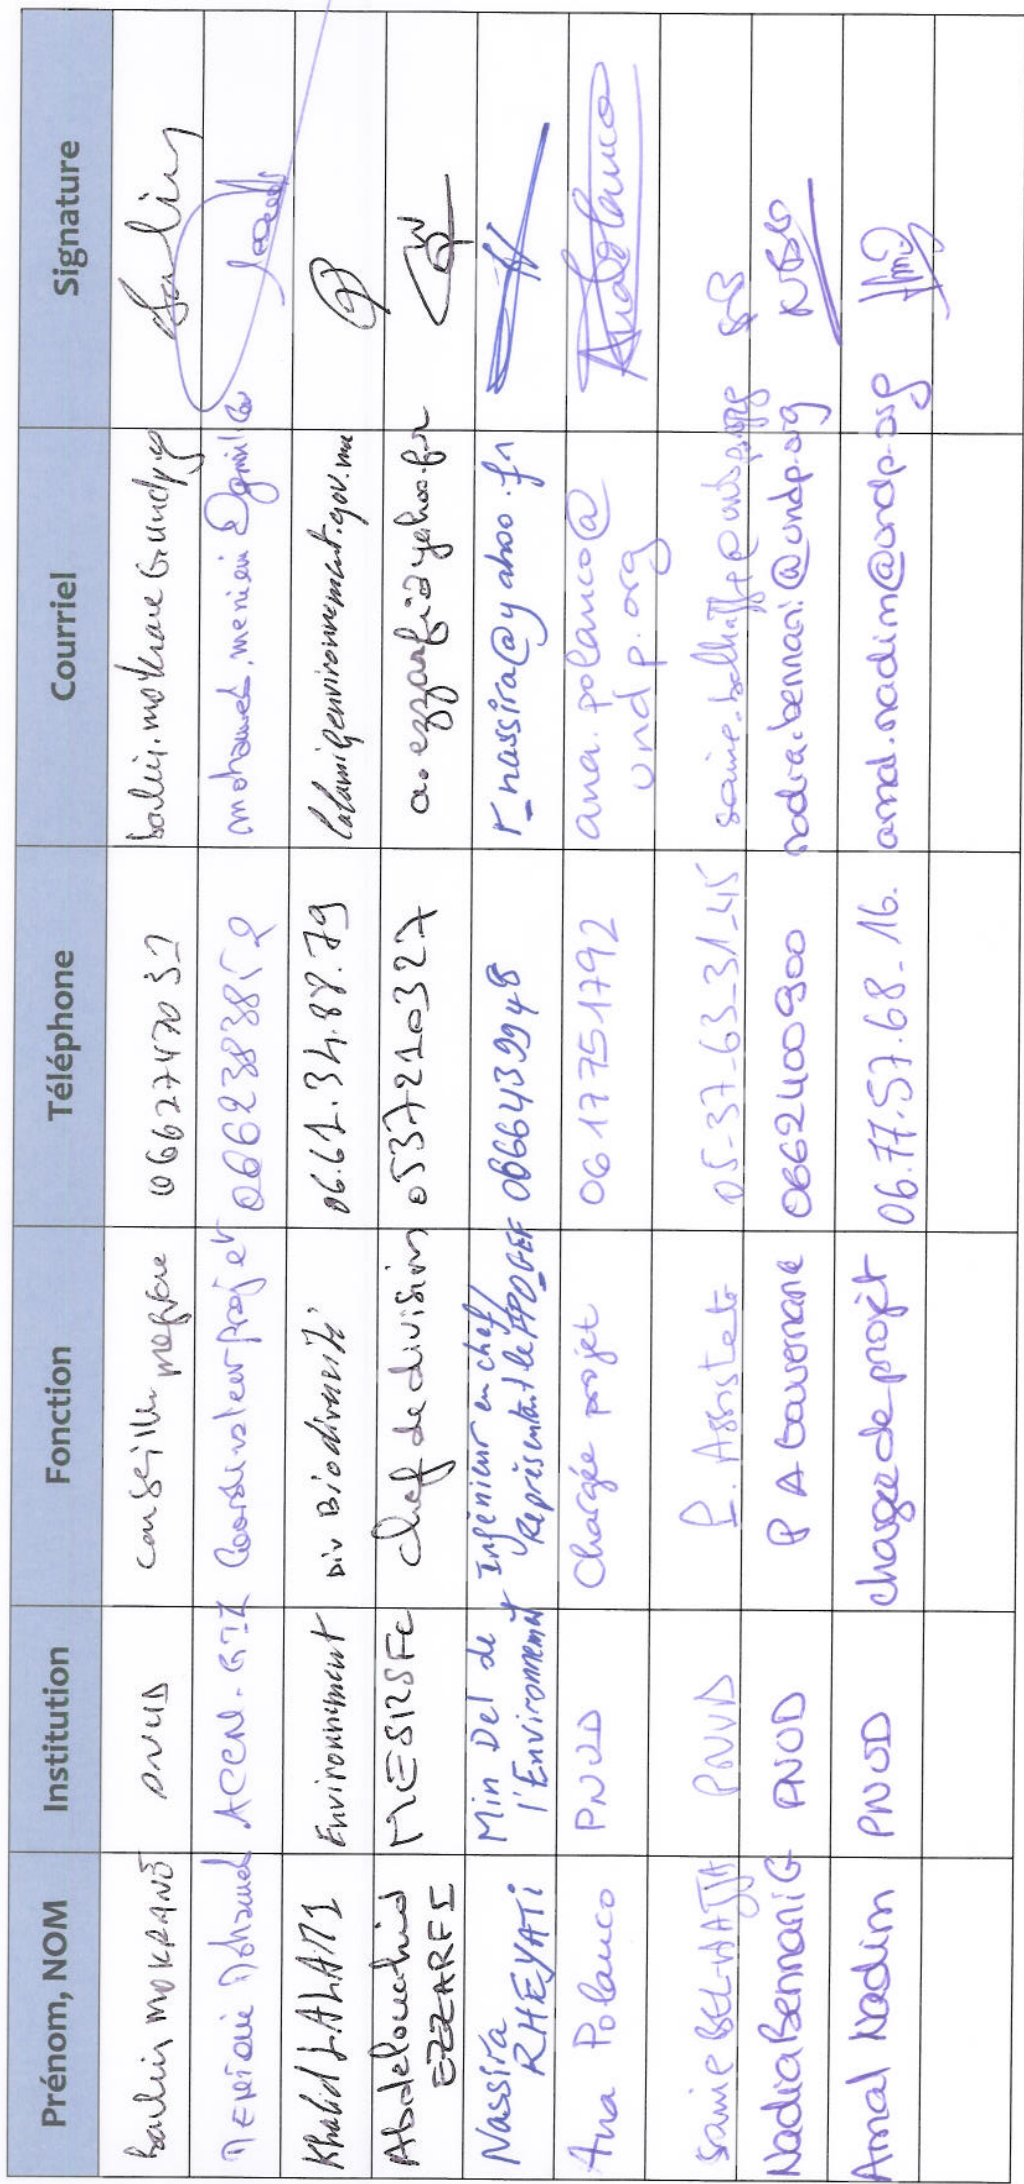 Prénom, NOM Institution Fonction Téléphone Courriel Signature
MOKRANE PNUD conseiller 0662747032
Mohamed ACCN-GIZ Coordinateur projet 0662383852
Khalid LALAMI Environnement Div Biodiversité 06.61.34.88.79
Abdelouahid
EZZARFI
MESRSFC chef de division 0537210327 a.ezzarfi@yahoo.fr
Nassira
RHEYATI
Min Del de
l'Environnement
Ingénieur en chef/
Représentant le PFO GEF
0666439948 r_nassira@yahoo.fr
Ana Polanco PNUD Chargée projet 06177551792 ana.polanco@
undp.org
Ana Polanco
PNUD P. Assistante 05-37-63-31-45
Nadia Bennani G PNUD P A Gouvernane 0662400900 nadia.bennani@undp.org
Amal Nadim PNUD chargée de projet 06.77.57.68.16. amal.nadim@undp.org